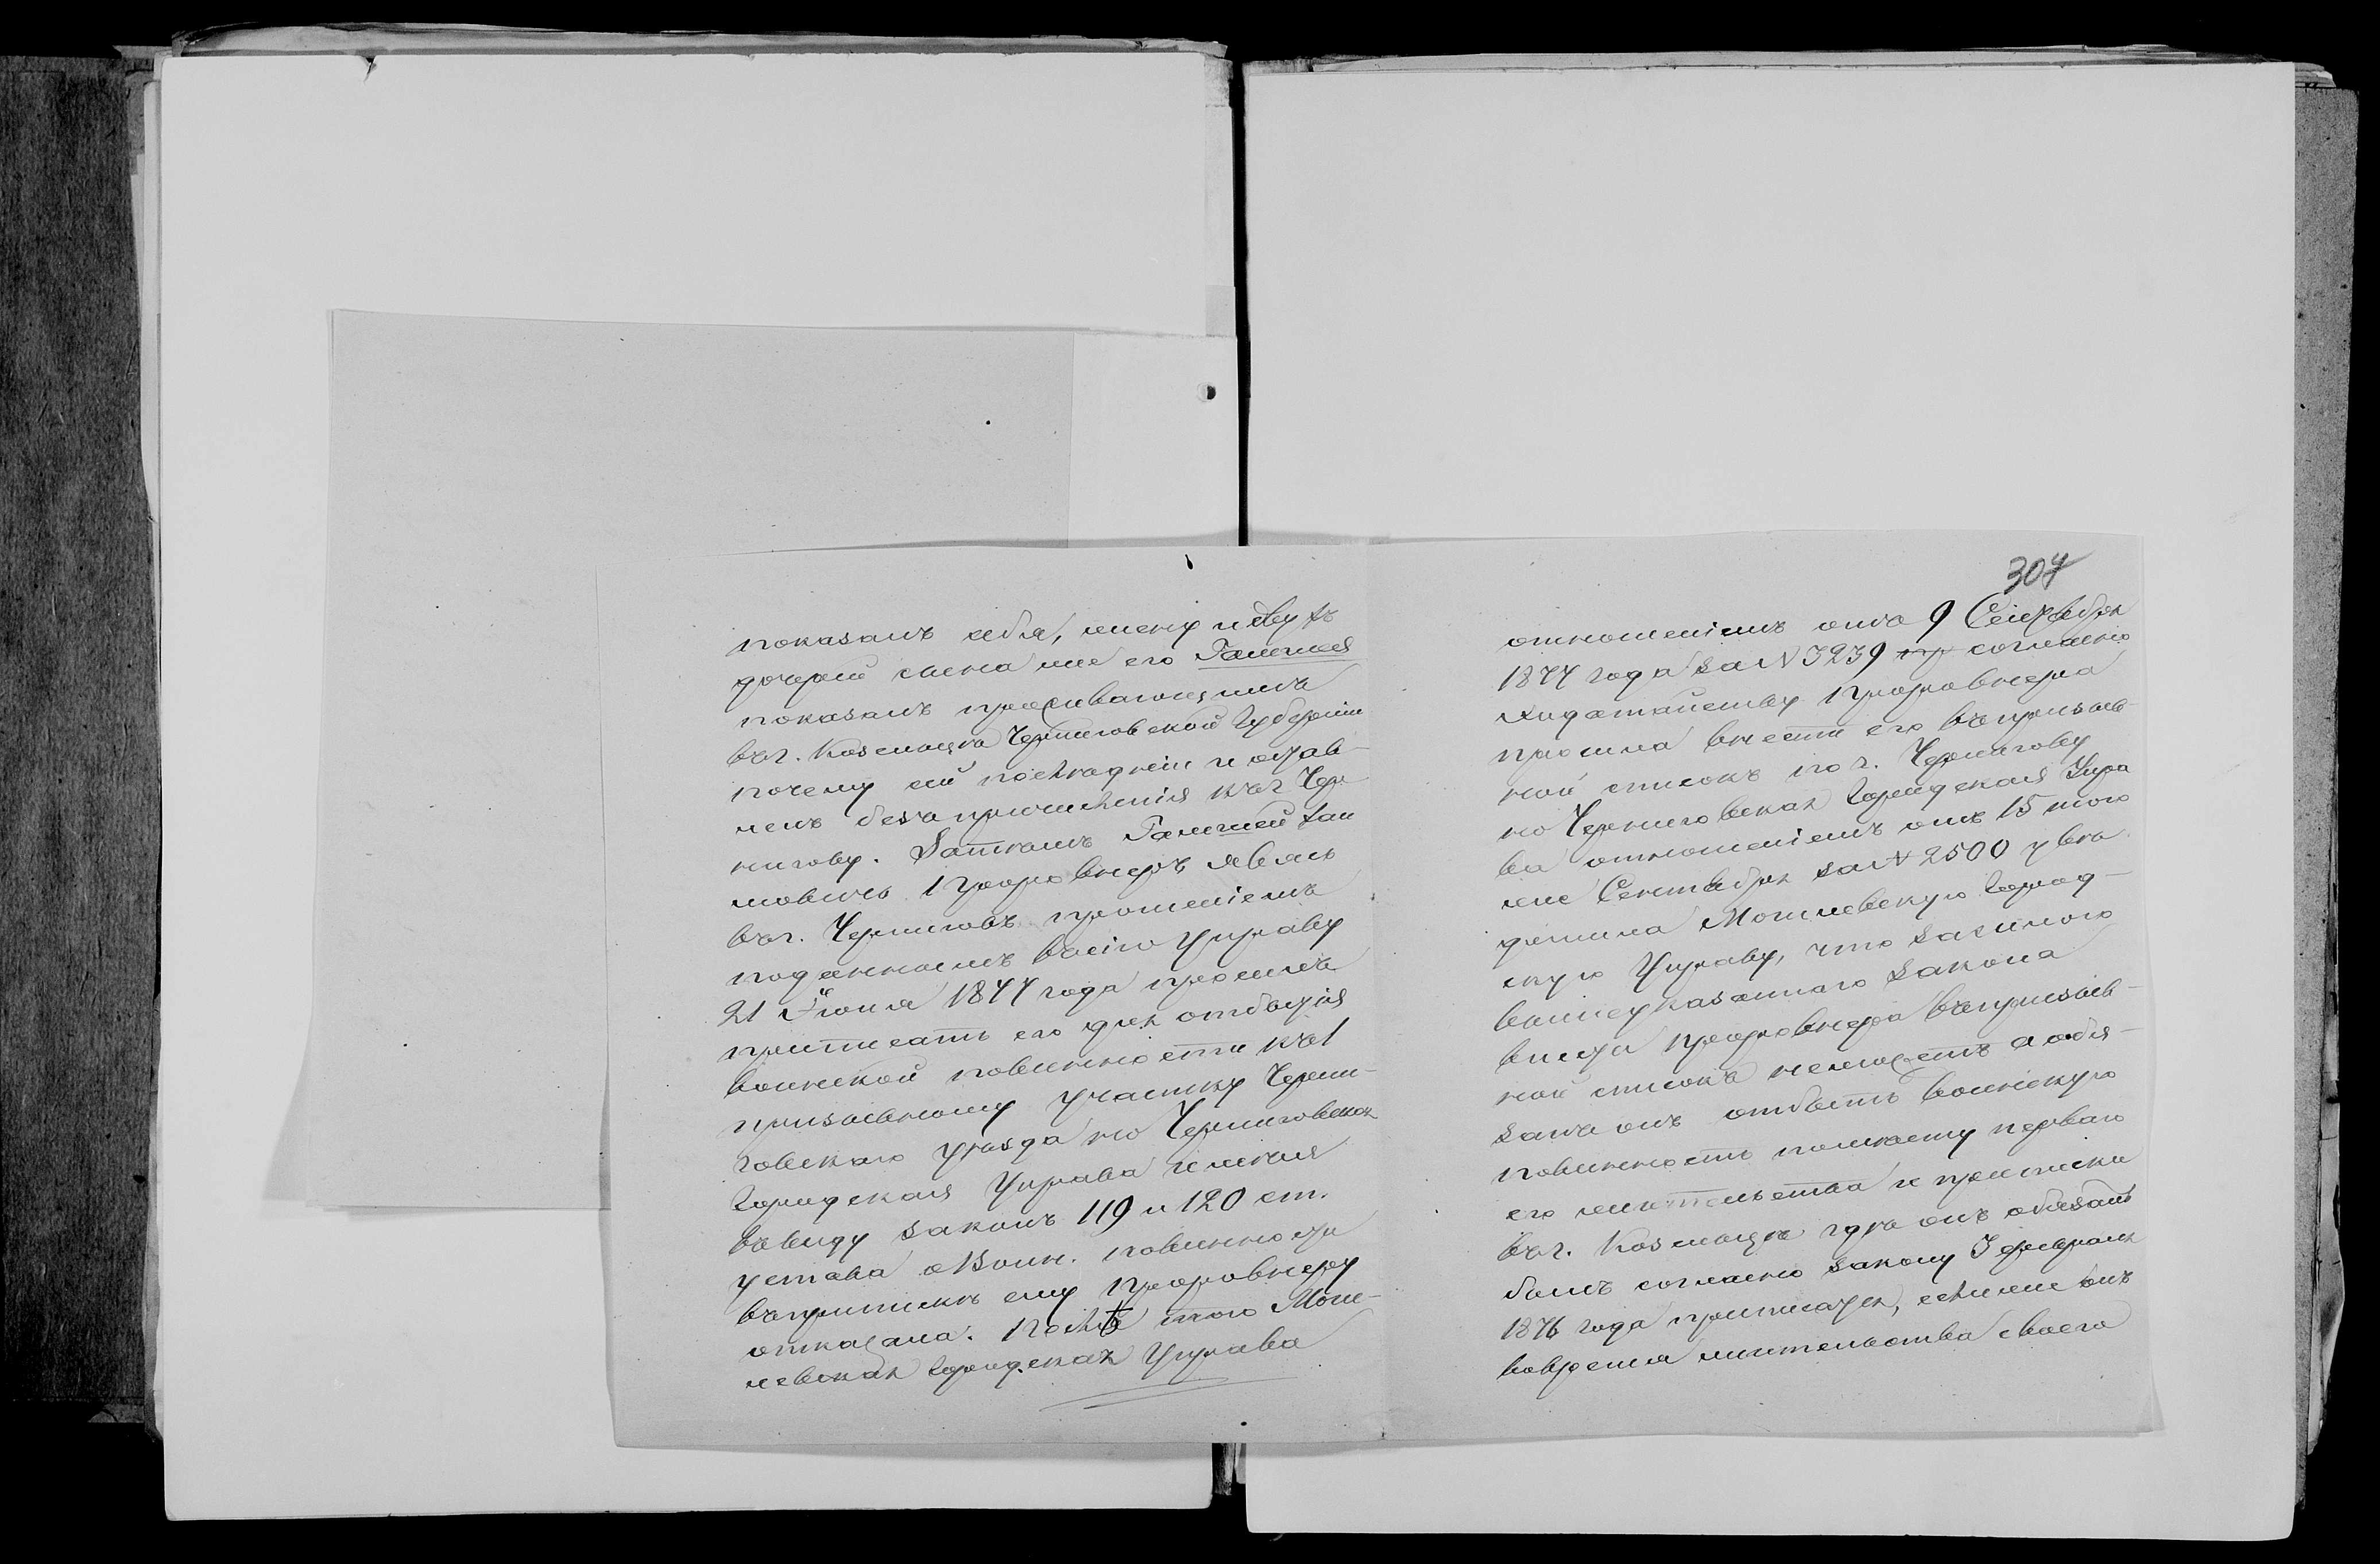 показалъ себя, жену и двухъ
дочерей сына же его Галмея
показалъ проживающимъ
въ г. Козельцѣ Черниговской Губерніи
почему сей послѣдній и остав-
ленъ безъ причисленія къ г. Чер-
нигову. Затѣмъ Галмей Зал
мовичъ Прорвнеръ явясь
въ г. Черниговъ прошеніемъ
поданнымъ въ сію Управу
21 Іюня 1877 года просилъ
приписать его для отбытія
воинской повинности къ 1
призывному участку Черни-
говскаго уѣзда но Черниговская
Городская Управа имѣя
въ виду законъ 119 и 120 ст.
устава о Воин. повинности
въ припискѣ ему Прорвнеру
отказала. Послѣ того Моги-
левская Городская Управа
307
отношеніемъ отъ 9 Сентября
1877 года за N 3239 согласно
ходатайству Прорвнера
просила внести его въ призыв-
ной списокъ по г. Чернигову
но Черниговская Городская Упра
ва отношеніемъ отъ 15 того
же Сентября за N 2500 увѣ
домила Могилевскую Город-
скую Управу, что за силою
вышеуказаннаго закона
внести Прорвнера въ призыв-
ной списокъ не можетъ а обя-
занъ онъ отбыть воинскую
повинность по мѣсту перваго
его жительства и приписки
въ г. Козельцѣ гдѣ онъ обязанъ
былъ согласно закону 3 февраля
1876 года приписаться, если же онъ
во время жительства своего